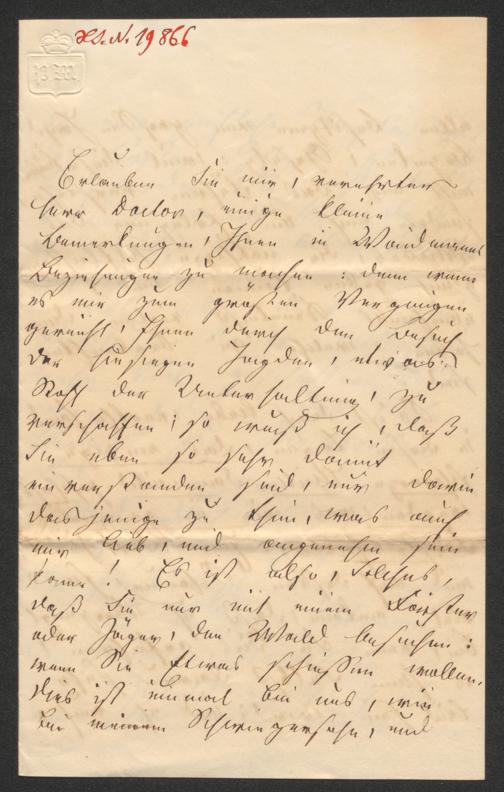 H.I.N. 19866
Erlauben Sie mir, verehrter
Herr Doctor, einige kleine
Bemerkungen, Ihnen in
Beziehungen zu machen: denn wenn
es mir zum größten Vergnügen
gereicht, Ihnen durch den Besuch
der hiesigen Jagden, etwas
Stoff der Unterhaltung, zu
verschaffen; so weiß ich, daß
Sie eben so sehr damit
einverstanden sind, nur darin
dasjenige zu thun, was auch
mir lieb, und angenehm sein
kann! Es ist also,
daß Sie nur mit einem Förster
oder Jäger, den Wald besuchen:
wenn Sie Etwas schießen wollen.
Dies ist einmal bei uns, wie
bei meinem Schwiegersohn, und